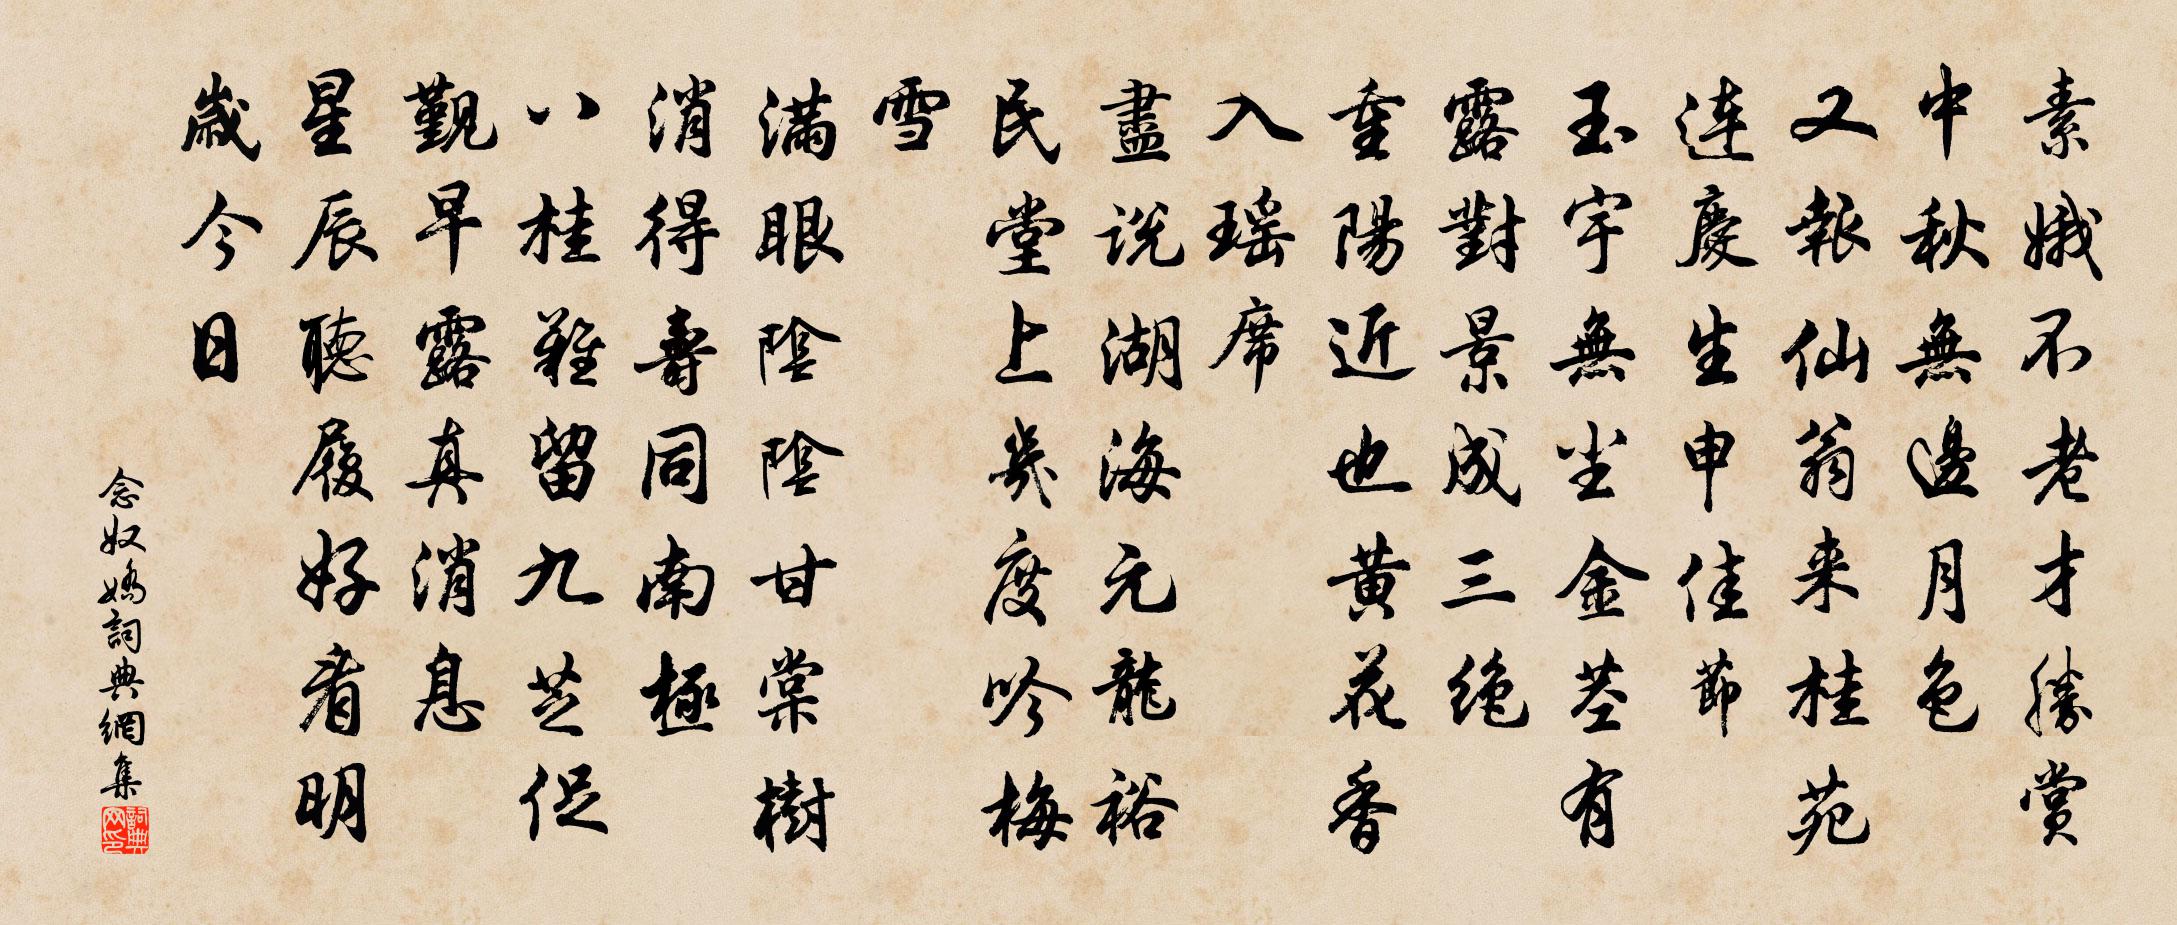 素娥不老才勝賞
中秋無邊月色
又報仙翁來桂苑
連慶生申佳節
玉宇無塵金莖有
露對景成三絶
重陽近也黃花香
入瑤席
盡說湖海元龍裕
民堂上幾度吟梅
雪
滿眼陰陰甘棠樹
消得壽同南極
八桂難留九芝促
覲早露真消息
星辰聽履好看明
歲今日
念奴嬌詞典網集
詞典網印